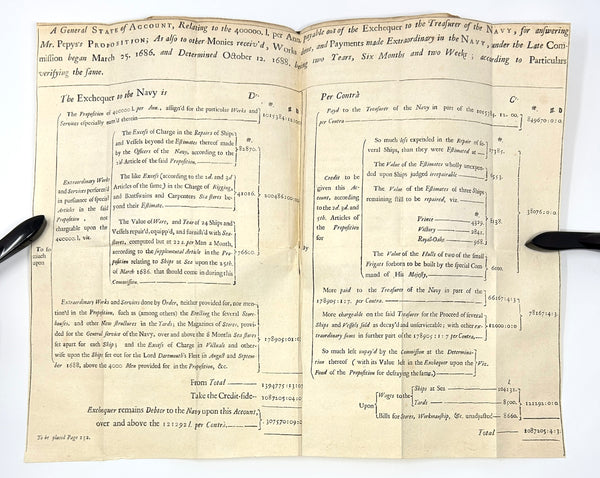 A General STATE of ACCOUNT, Relating to the 400000. l. per Ann. payable out of the Exchequer to the Treasurer of the NAVY, for answering
Mr. Pepys's PROPOSITION; As also to other Monies receiv'd, Works done, and Payments made Extraordinary in the NAVY, under the Late Com-
mission began March 25. 1686. and Determined October 12. 1688. being two Years, Six Months and two Weeks; according to Particulars
verifying the same.
The Exchequer to the Navy is Dr.
The Proposition of 400000. l. per Ann. assign'd for the particular Works and
Services especially nam'd therein
Extraordinary Works
and Services perform'd
in pursuance of special
Articles in the said
Proposition, not
chargeable upon the
400000. l. viz.
The Excess of Charge in the Repairs of Ships
and Vessels beyond the Estimates thereof made
by the Officers of the Navy, according to the
2d. Article of the said Proposition.
82870.
The like Excess (according to the 2d. and 3d
Articles of the same) in the Charge of Rigging,
and Boatswains and Carpenters Sea stores be-
yond their Estimate.
The Value of Wore, and Tear of 24 Ships and
Vessels repair'd, equipp'd, and furnish'd with Sea-
stores, computed but at 22 s. per Man a Month,
according to the supplemental Article in the Pro-
position relating to Ships at Sea upon the 25th.
of March 1686. that should come in during this
Commission.
Extraordinary Works and Services done by Order, neither provided for, nor men-
tion'd in the Proposition, such as (among others) the Erecting the several Store-
houses, and other New Structures in the Yards; the Magazines of Stores, provi-
ded for the General service of the Navy, over and above the 8 Months Sea stores
set apart for each Ship; and the Excess of Charge in Victuals and other-
wise upon the Ships set out for the Lord Dartmouth's Fleet in August and Septem-
ber 1688, above the 4000 Men provided for in the Proposition, &c.
From Total
Take the Credit-side
Exchequer remains Debtor to the Navy upon this Account,
over and above the 121292 l. per Contra.
To be placed Page 152.
Per Contrà Cr.
Paid to the Treasurer of the Navy in part of the
per Contra
849670:0:0.
Credit to be
given this Ac-
count, according
to the 2d. 3d. and
5th. Articles of
the Proposition
for
So much less expended in the Repair of se-
veral Ships, than they were Estimated at
The Value of the Estimates wholly unexpen-
ded upon Ships judged irrepairable
The Value of the Estimates of three Ships
remaining still to be repaired, viz.
Prince
Victory
Royal-Oake
The Value of the Hulls of two of the small
Frigats forborn to be built by the special Com-
mand of His Majesty,
38076:0:0
More paid to the Treasurer of the Navy in part of the
178905:1:7. per Contra.
66167:4:3.
More chargeable on the said Treasurer for the Proceed of several
Ships and Vessels sold as decay'd and unserviceable; with other ex-
traordinary sums in further part of the 178905:1:7 per Contra,
78167:4:3.
So much left unpay'd by the Commission at the Determina-
tion thereof (with its Value left in the Exchequer upon the
Fund of the Proposition for defraying the same.)
121292:0:0.
Upon
Wages to the
Ships at Sea
Yards
Bills for Stores, Workmanship, &c. unadjusted 8660.
Total 1087205:4:3.